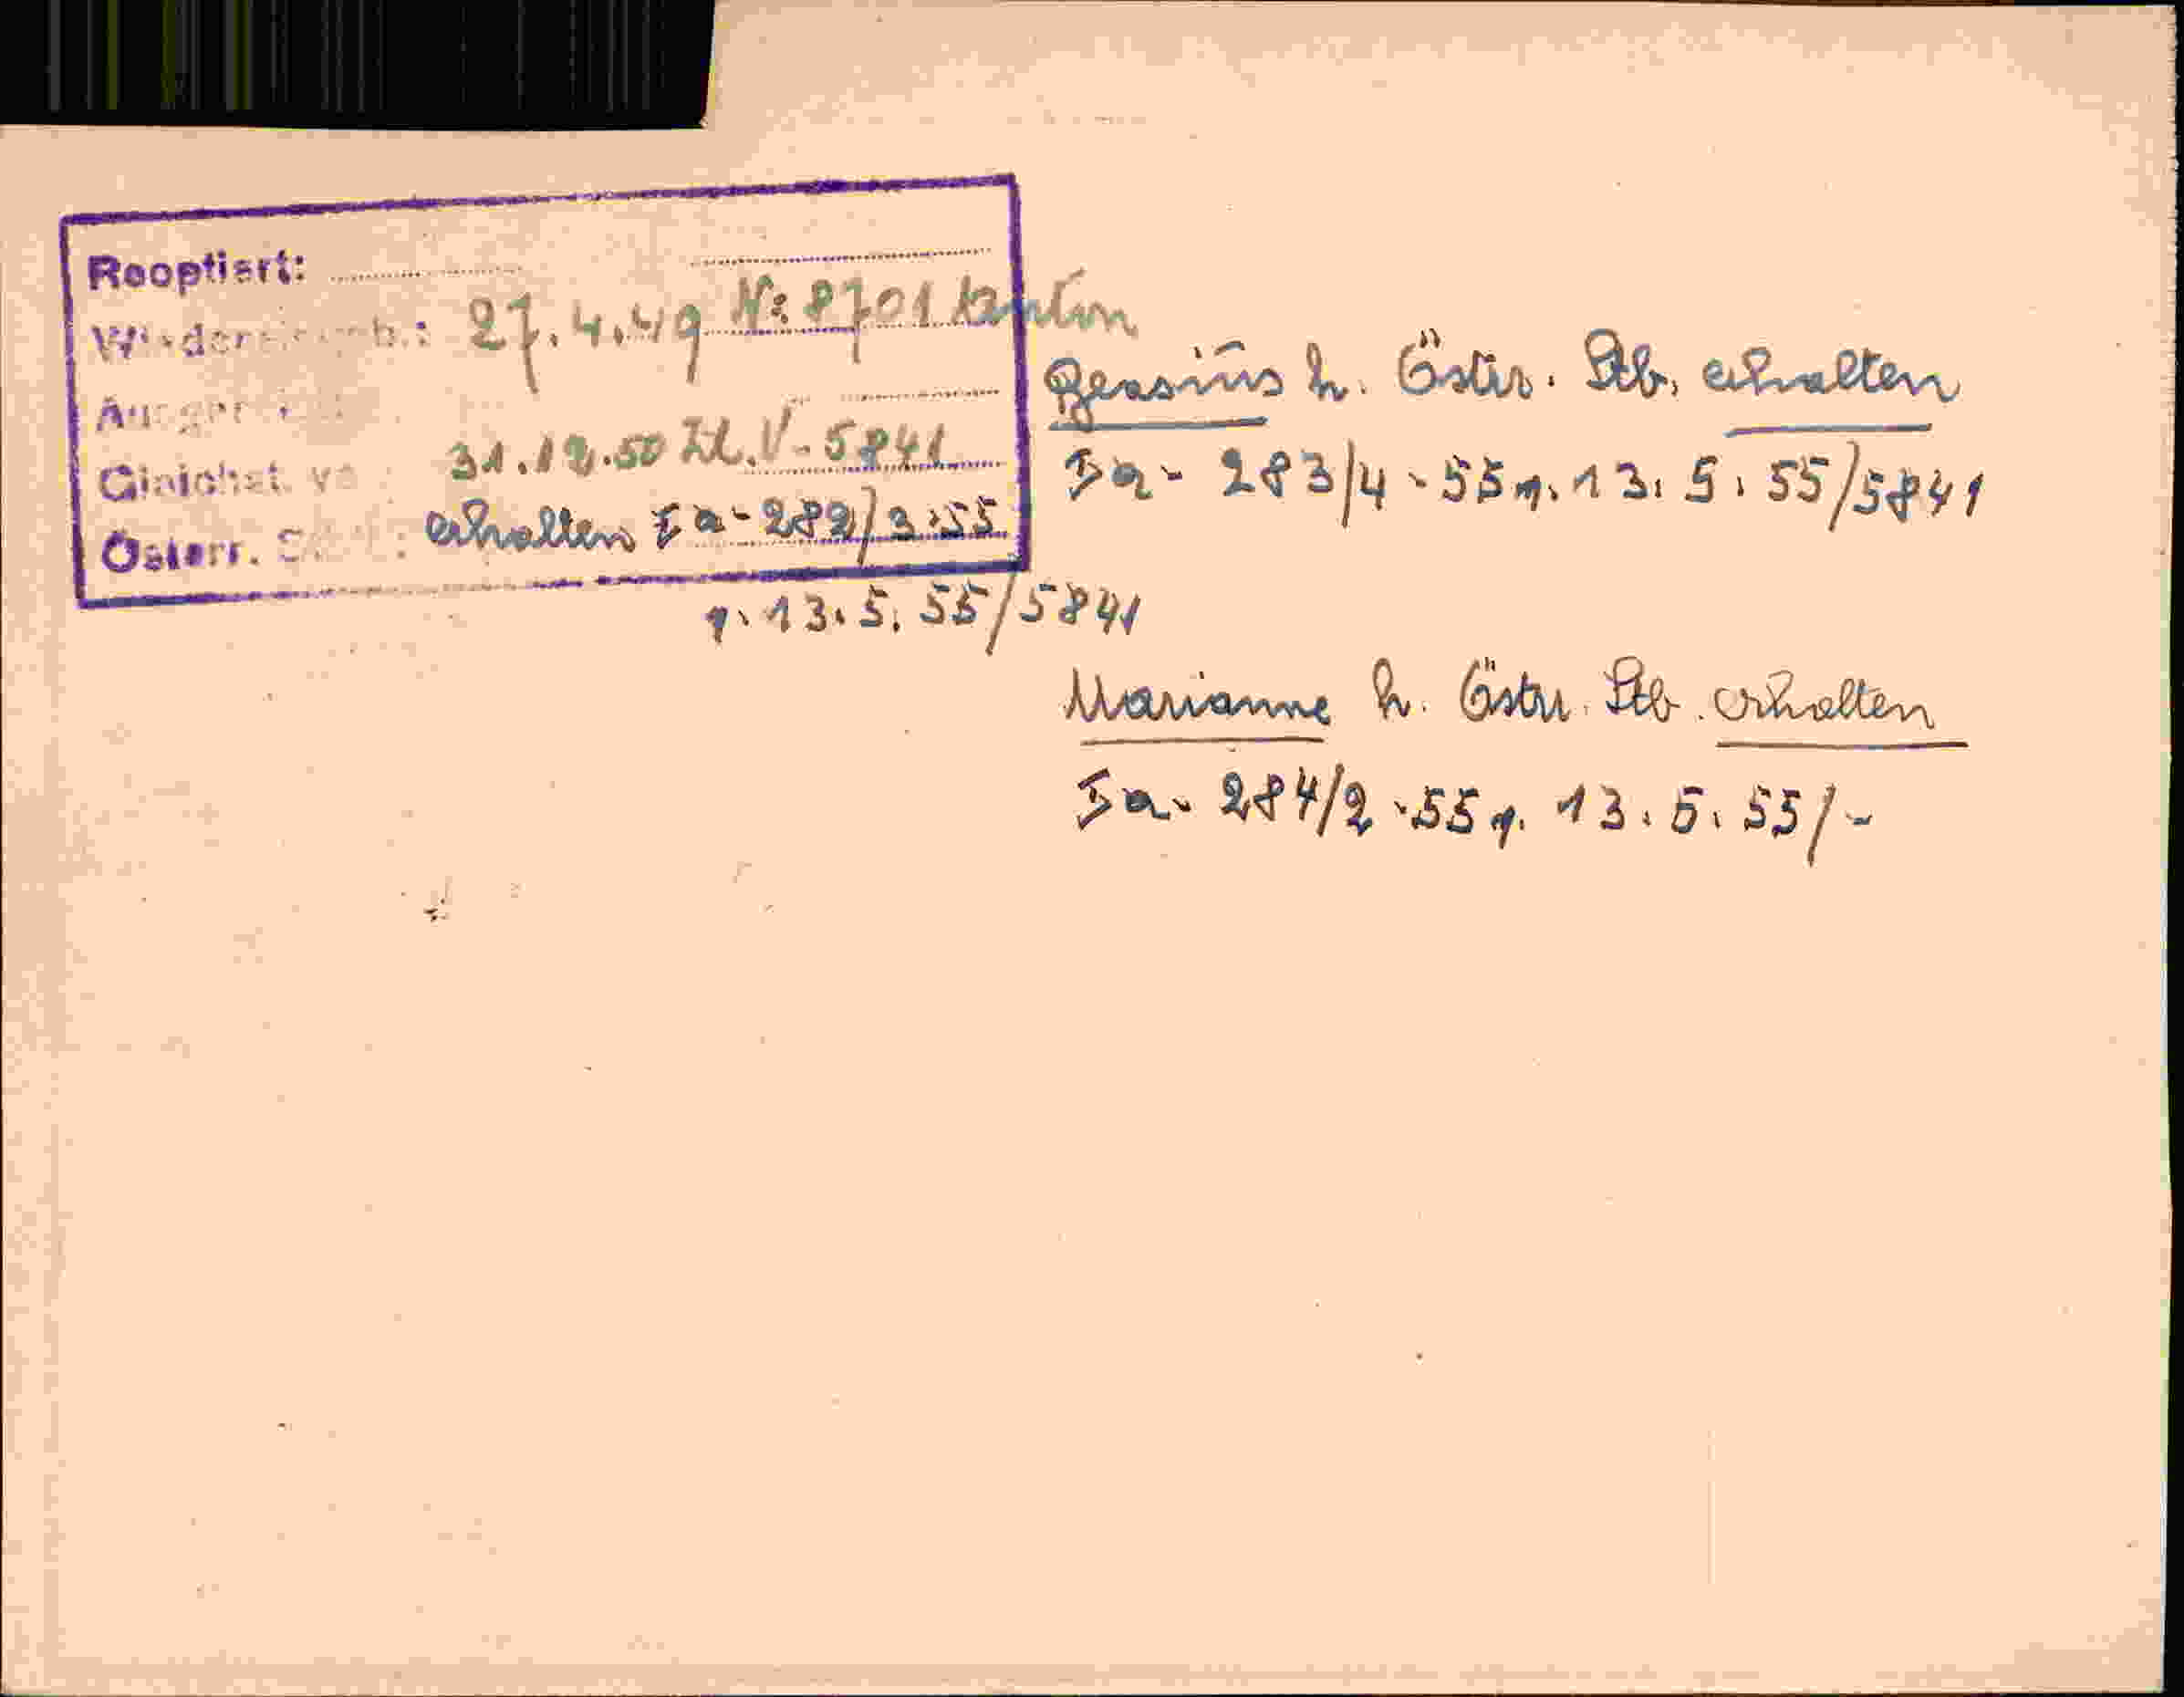 Reoptiert:
27.4.49 No 8701 Anton
31.12.50 Zl. V-5841
Österr. erhalten Ia-282/3-55
v. 13.5.55/5841
h. Östr. Stb. erhalten
Ia- 283/4-55 v. 13.5.55/5841
Marianne h. Östr. Stb. erhalten
Ia- 284/2-55 v. 13.5.55/-